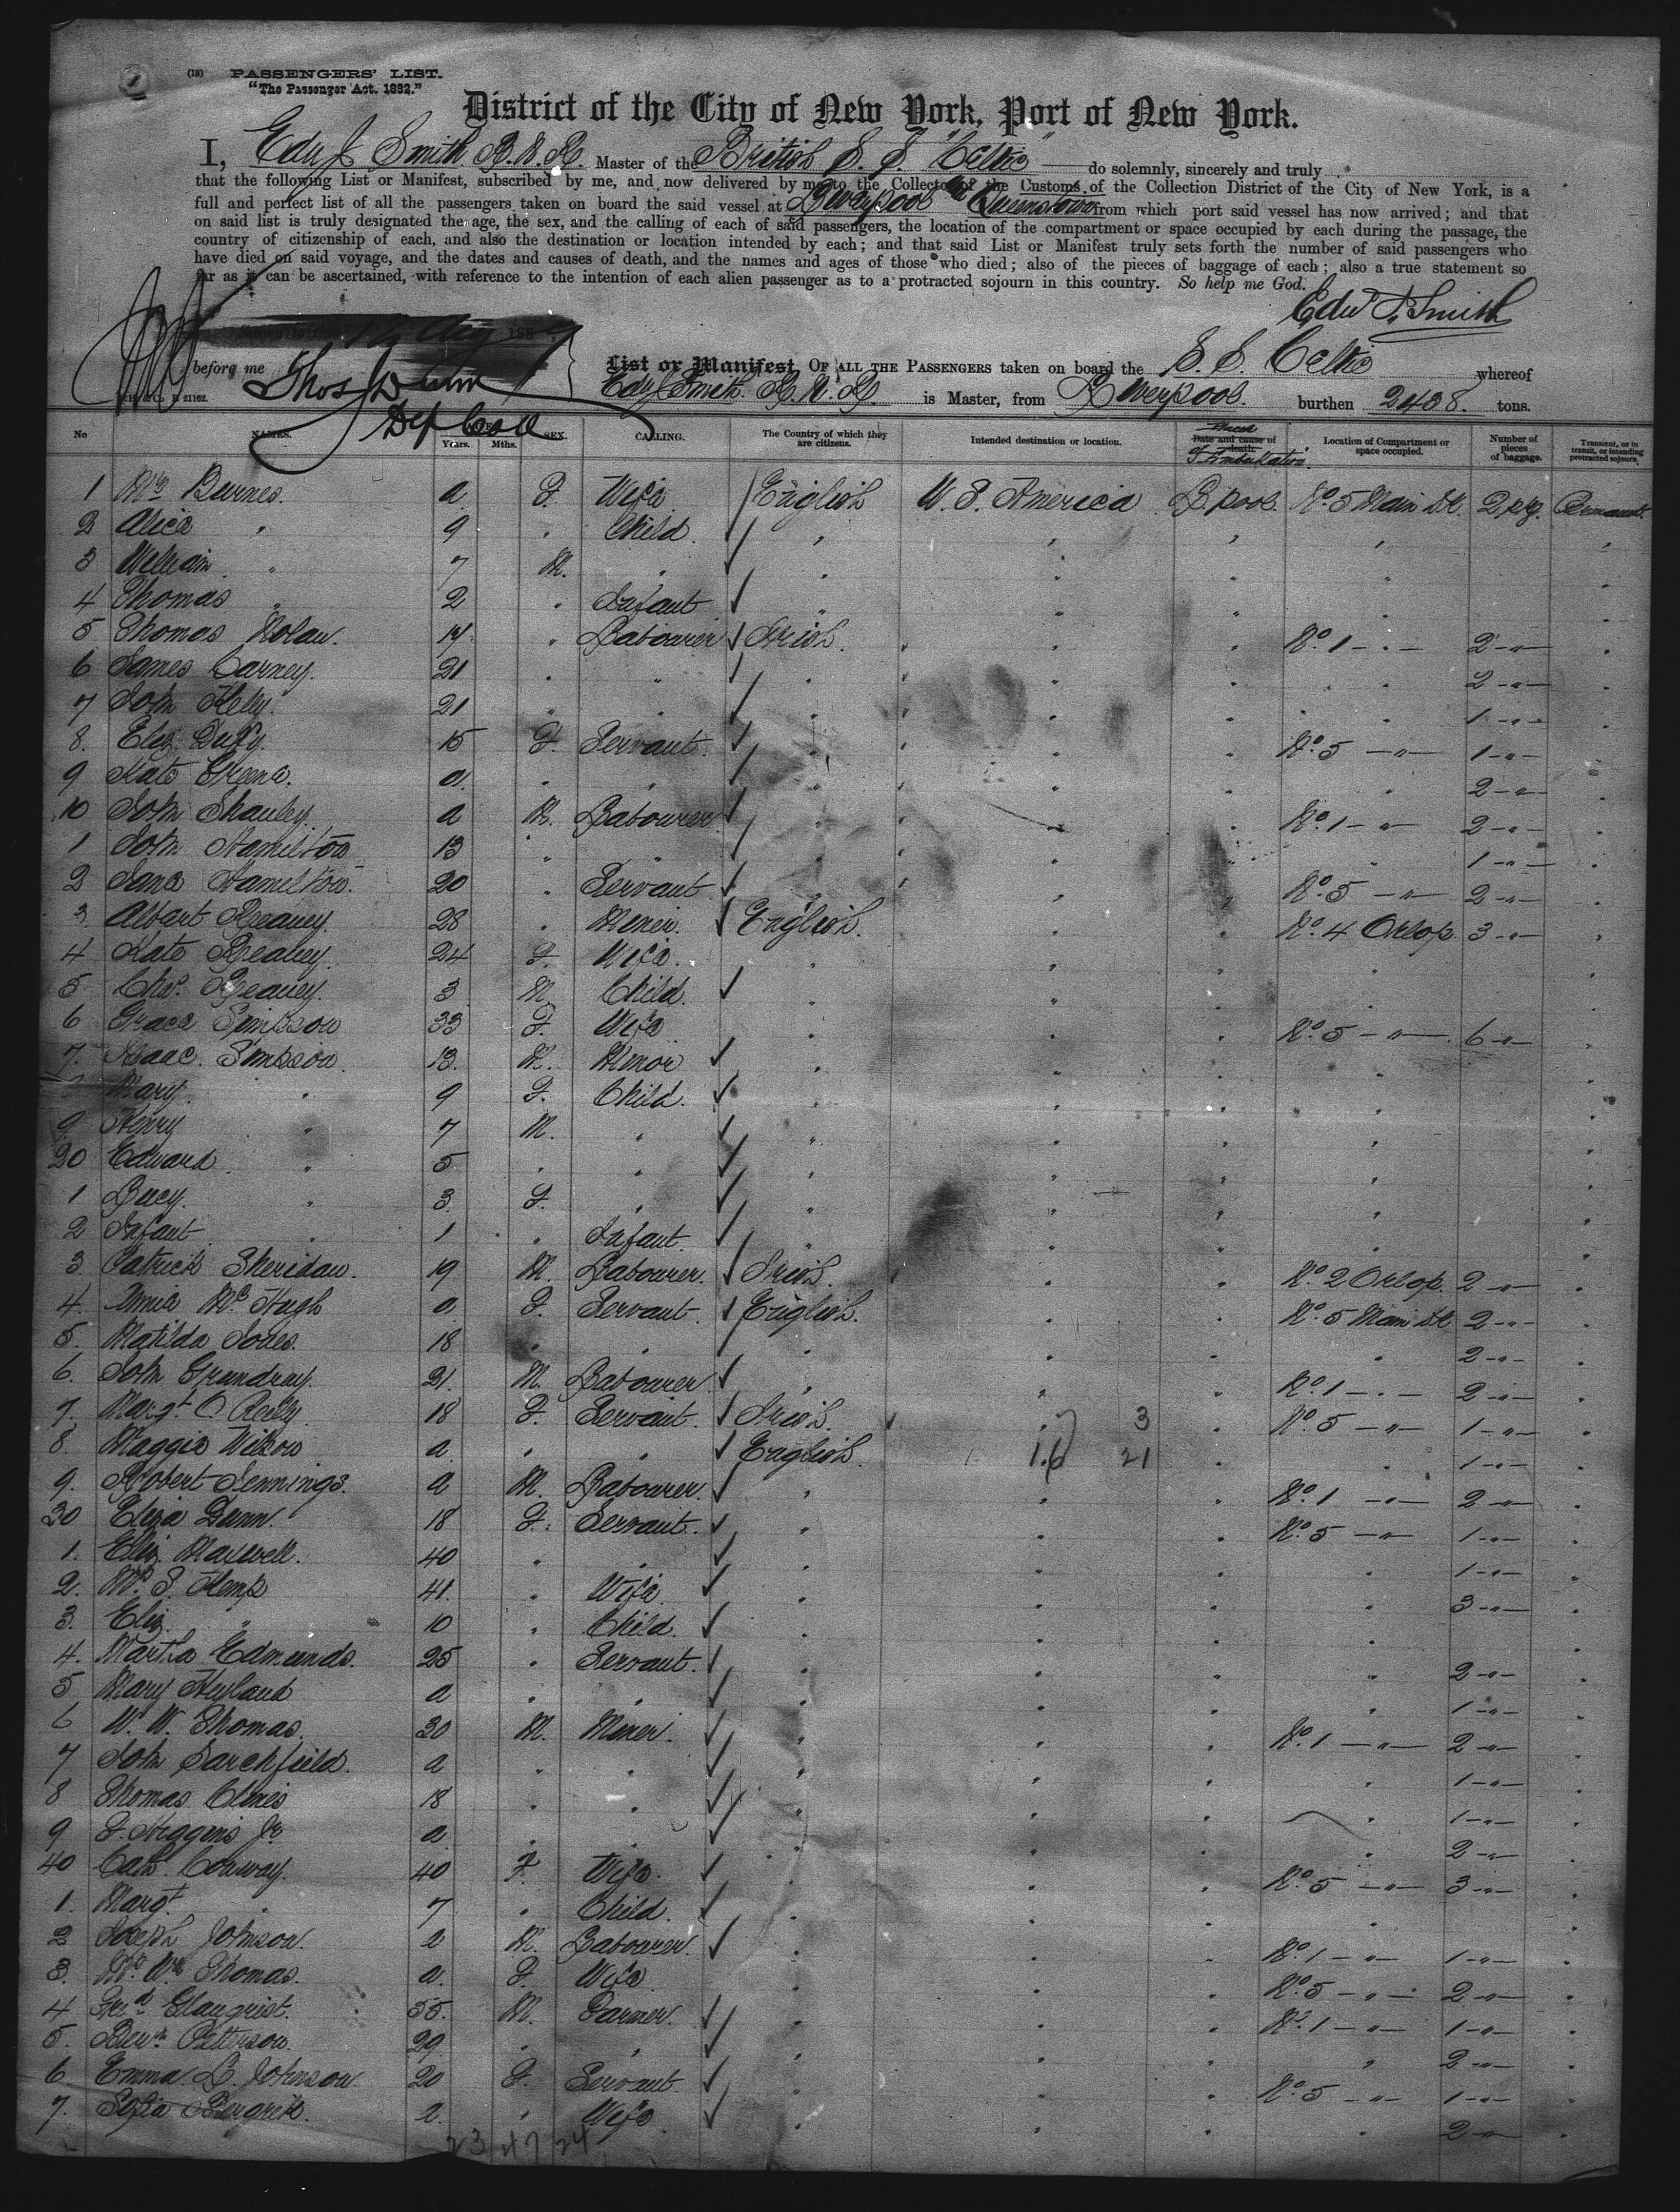 (18) PASSENGERS' LIST.
"The Passenger Act, 1882."
District of the City of New York, Port of New York.
I, Edw J Smith R.N.R. Master of the British S. S. "Celtic" do solemnly, sincerely and truly
that the following List or Manifest, subscribed by me, and now delivered by me to the Collector of the Customs of the Collection District of the City of New York, is a
full and perfect list of all the passengers taken on board the said vessel at Liverpool & Queenstown from which port said vessel has now arrived; and that
on said list is truly designated the age, the sex, and the calling of each of said passengers, the location of the compartment or space occupied by each during the passage, the
country of citizenship of each, and also the destination or location intended by each; and that said List or Manifest truly sets forth the number of said passengers who
have died on said voyage, and the dates and causes of death, and the names and ages of those who died; also of the pieces of baggage of each; also a true statement so
far as it can be ascertained, with reference to the intention of each alien passenger as to a protracted sojourn in this country. So help me God.
Edw J. Smith
Aug 188
before me Thos Dunn
Dep Coll
List or Manifest OF ALL THE PASSENGERS taken on board the S. S. Celtic whereof
Edw J Smith R.N.R. is Master, from Liverpool. burthen 2438. tons.
No NAMES. AGE Years. Mths. SEX. CALLING. The Country of which they are citizens. Intended destination or location. Place Date and cause of death. of Embarkation. Location of Compartment or space occupied. Number of pieces of baggage. Transient, or in transit, or intending protracted sojourn
1 Mrs Burnes. a F. Wife English U. S. America L.pool. No 5 Main Dk. 2 pkg. Permanent.
2 Alice " 9 " Child. "
3 William " 7 M. " "
4 Thomas " 2 " Infant "
5 Thomas Nolan. 19 " Labourer Irish. No 1 - " - 2 - " -
6 James Carney. 21 " " " 2 - " -
7 John Kely. 21 " " " 1 - " -
8. Eliz. Duffy. 15 F. Servant. " No 5 - " - 1 - " -
9 Kate Greene. a. " " " 2 - " -
10 John Shanley. a M. Labourer " No 1 - " - 2 - " -
1 John Hamilton 13 " " " 1 - " -
2 Jane Hamilton. 20 " Servant " No 5 - " - 2 - " -
3. Albert Reaney. 28 " Miner. English. No 4 Orlop. 3 - " -
4 Kate Reaney. 24 F. Wife. "
5 Chs. Reaney. 3 M. Child. "
6 Grace Simpson 33 F. Wife " No 5 - " - 6 - " -
7. Isaac. Simpson. 13. M. Minor "
Mary. " 9 F. Child. "
9. Henry " 7 M. " "
20 Edward " 5 " " "
1 Lucy. " 3. F. " "
2 Infant " 1 " Infant. "
3 Patrick Sheridan. 19 M. Labourer. Irish. No 2 Orlop. 2 - " -
4. Annie McHugh a F. Servant English. No 5 Main Dk 2 - " -
5. Matilda Jones. 18 " " " 2 - " -
6. John Grundray. 21. M. Labourer " No 1 - " - 2 - " -
7. Margt O'Reilly 18 F. Servant. Irish. 3 No 5 - " - 1 - " -
8. Maggie Wilson a. " " English 16 21 1 - " -
9. Robert Jennings. a M. Labourer. " No 1 - " - 2 - " -
30 Eliza Dunn. 18 F. Servant. " No 5 - " - 1 - " -
1. Eliz. Maxwell. 40 " " " 1 - " -
2. Mrs S. Kemp 41. " Wife. " 3 - " -
3. Eliz. " 10 " Child. "
4. Martha Edmunds. 25 " Servant. " 2 - " -
5 Mary Hyland a " " " 1 - " -
6 W. W. Thomas. 30 M. Miner. " No 1 - " - 2 - " -
7 John Sarchfield. a " " " 1 - " -
8 Thomas 18 " " " 1 - " -
9 F. Higgins Jr a " " " 2 - " -
40 Cath. Conway. 40 F. Wife. " No 5 - " - 3 - " -
1. Margt. " 7 " Child. "
2 Joseph Johnson. a M. Labourer. " No 1 - " - 1 - " -
3. Mrs Wm Thomas. a. F. Wife " No 5 - " - 2 - " -
4 Glanqvist. 55. M. Farmer. " No 1 - " - 1 - " -
5. Petterson. 29 " " " 2 - " -
6. Emma. L. Johnson. 20 F. Servant " No 5 - " - 1 - " -
7. Sofia a. " Wife " 2 - " -
23 47 24